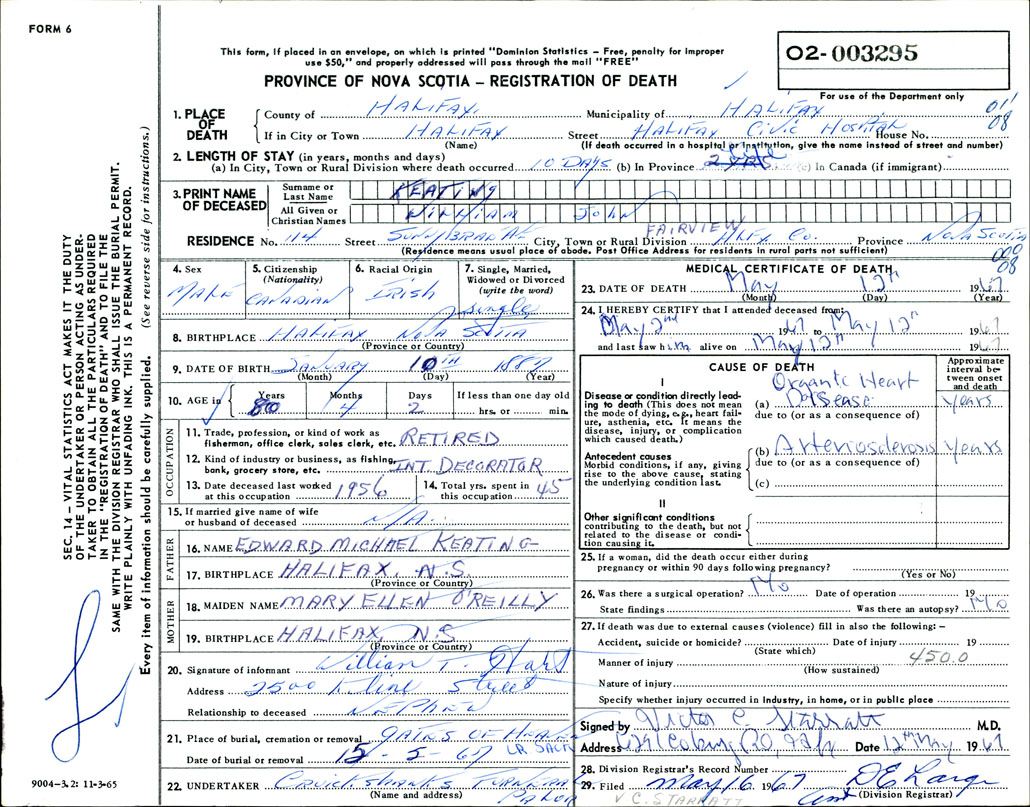 FORM 6
This form, if placed in an envelope, on which is printed "Dominion Statistics – Free, penalty for improper
use $50," and properly addressed will pass through the mail "FREE"
PROVINCE OF NOVA SCOTIA – REGISTRATION OF DEATH
02-003295
For use of the Department only
011
08
1. PLACE OF DEATH
County of HALIFAX. Municipality of HALIFAX
If in City or Town HALIFAX Street HALIFAX CIVIC HOSPITAL House No.
(Name) (If death occurred in a hospital or institution, give the name instead of street and number)
2. LENGTH OF STAY (in years, months and days)
(a) In City, Town or Rural Division where death occurred 10 DAYS (b) In Province Life (c) In Canada (if immigrant)
3. PRINT NAME OF DECEASED
Surname or Last Name KEATING
All Given or Christian Names William John
FAIRVIEW
RESIDENCE No. 114 Street SUNNYBRAE AVE City, Town or Rural Division HLFX Co. Province NOVA SCOTIA
(Residence means usual place of abode. Post Office Address for residents in rural parts not sufficient)
000
08
4. Sex MALE
5. Citizenship (Nationality) CANADIAN
6. Racial Origin IRISH
7. Single, Married, Widowed or Divorced (write the word) single
8. BIRTHPLACE HALIFAX NOVA SCOTIA
(Province or Country)
9. DATE OF BIRTH JANUARY 10TH 1887
(Month) (Day) (Year)
10. AGE in Years 80 Months 4 Days 2 If less than one day old hrs. or min.
OCCUPATION
11. Trade, profession, or kind of work as fisherman, office clerk, sales clerk, etc. RETIRED
12. Kind of industry or business, as fishing, bank, grocery store, etc. INT. DECORATOR
13. Date deceased last worked at this occupation 1956
14. Total yrs. spent in this occupation 45
15. If married give name of wife or husband of deceased N/A.
FATHER
16. NAME EDWARD MICHAEL KEATING
17. BIRTHPLACE HALIFAX, N.S.
(Province or Country)
MOTHER
18. MAIDEN NAME MARY ELLEN O'REILLY
19. BIRTHPLACE HALIFAX, N.S
(Province or Country)
20. Signature of informant William T. Hart
Address 2500 Kline Street
Relationship to deceased NEPHEW
21. Place of burial, cremation or removal GATES OF HEAVEN
LR SACK
Date of burial or removal 15 - 5 - 67
22. UNDERTAKER Cruickshanks Funeral
Parlor
(Name and address)
MEDICAL CERTIFICATE OF DEATH
23. DATE OF DEATH May 12th 1967
(Month) (Day) (Year)
24. I HEREBY CERTIFY that I attended deceased from:
May 2nd 1967 to May 12th 1967
and last saw him alive on May 12th 1967
CAUSE OF DEATH
Approximate interval between onset and death
I
Disease or condition directly leading to death (This does not mean the mode of dying, e.g., heart failure, asthenia, etc. It means the disease, injury, or complication which caused death.)
(a) Organic Heart Disease years
due to (or as a consequence of)
Antecedent causes
Morbid conditions, if any, giving rise to the above cause, stating the underlying condition last.
(b) Arteriosclerosis years
due to (or as a consequence of)
(c)
II
Other significant conditions
contributing to the death, but not related to the disease or condition causing it.
25. If a woman, did the death occur either during pregnancy or within 90 days following pregnancy?
(Yes or No)
26. Was there a surgical operation? No Date of operation 19
State findings Was there an autopsy? No
27. If death was due to external causes (violence) fill in also the following: –
Accident, suicide or homicide? Date of injury 19
(State which) 450.0
Manner of injury
(How sustained)
Nature of injury
Specify whether injury occurred in industry, in home, or in public place
Signed by Victor C. Starratt M.D.
Address Coburg RD, Date 12th May 1967
28. Division Registrar's Record Number
29. Filed may 16 1967
(Division Registrar)
V C. STARRATT
SEC. 14 – VITAL STATISTICS ACT MAKES IT THE DUTY
OF THE UNDERTAKER OR PERSON ACTING AS UNDER-
TAKER TO OBTAIN ALL THE PARTICULARS REQUIRED
IN THE "REGISTRATION OF DEATH" AND TO FILE THE
SAME WITH THE DIVISION REGISTRAR WHO SHALL ISSUE THE BURIAL PERMIT.
WRITE PLAINLY WITH UNFADING INK. THIS IS A PERMANENT RECORD.
Every item of information should be carefully supplied. (See reverse side for instructions.)
9004-3.2: 11-3-65